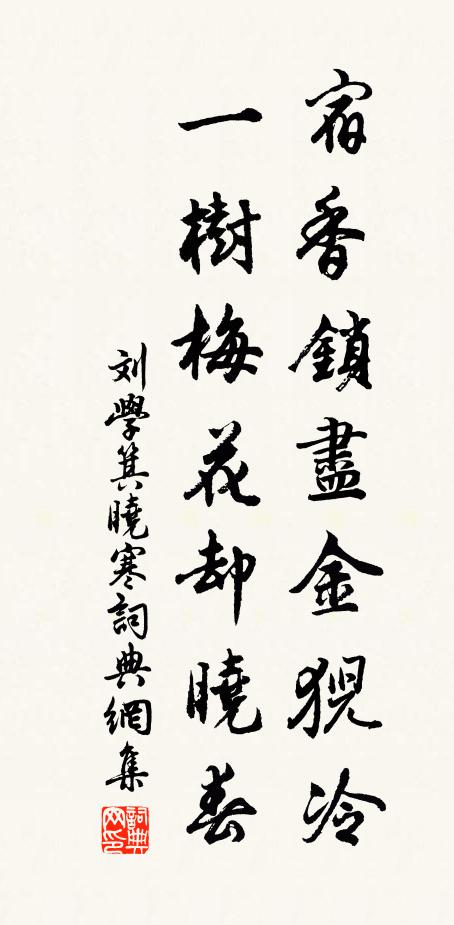 宿香鎖盡金猊冷
一樹梅花却曉春
刘學箕曉寒詞典網集
詞典网印